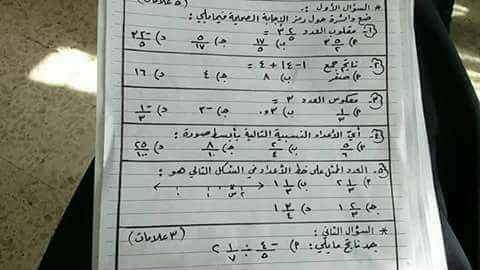 * السؤال الأول : (٥ علامات)
ضع دائرة حول رمز الإجابة الصحيحة فيما يلي :
١) مقلوب العدد ٣ ٢/٥ =
أ) ٣ ٥/٢ ب) ١٧/٥ جـ) ٥/١٧ د) -٣ ٢/٥
٢) ناتج جمع |-٤| + ٤ =
أ) صفر ب) ٨ جـ) ٤ د) ١٦
٣) معكوس العدد ٣ =
أ) ١/٣ ب) ٣ جـ) -٣ د) -١/٣
٤) أيّ الأعداد النسبية التالية بأبسط صورة :
أ) ٥/٦ ب) ٢/٤ جـ) ٨/١٠ د) ٢٥/١٠٠
٥) العدد الممثل على خط الأعداد في الشكل التالي هو :
أ) ٢ ١/٣ ب) ١ ١/٣
٠ ١ س ٢
جـ) ١ ٢/٣ د) ١ ٣/٤
* السؤال الثاني : (٣ علامات)
جد ناتج مايلي : أ) -٤/٥ ÷ ٢ ١/٧